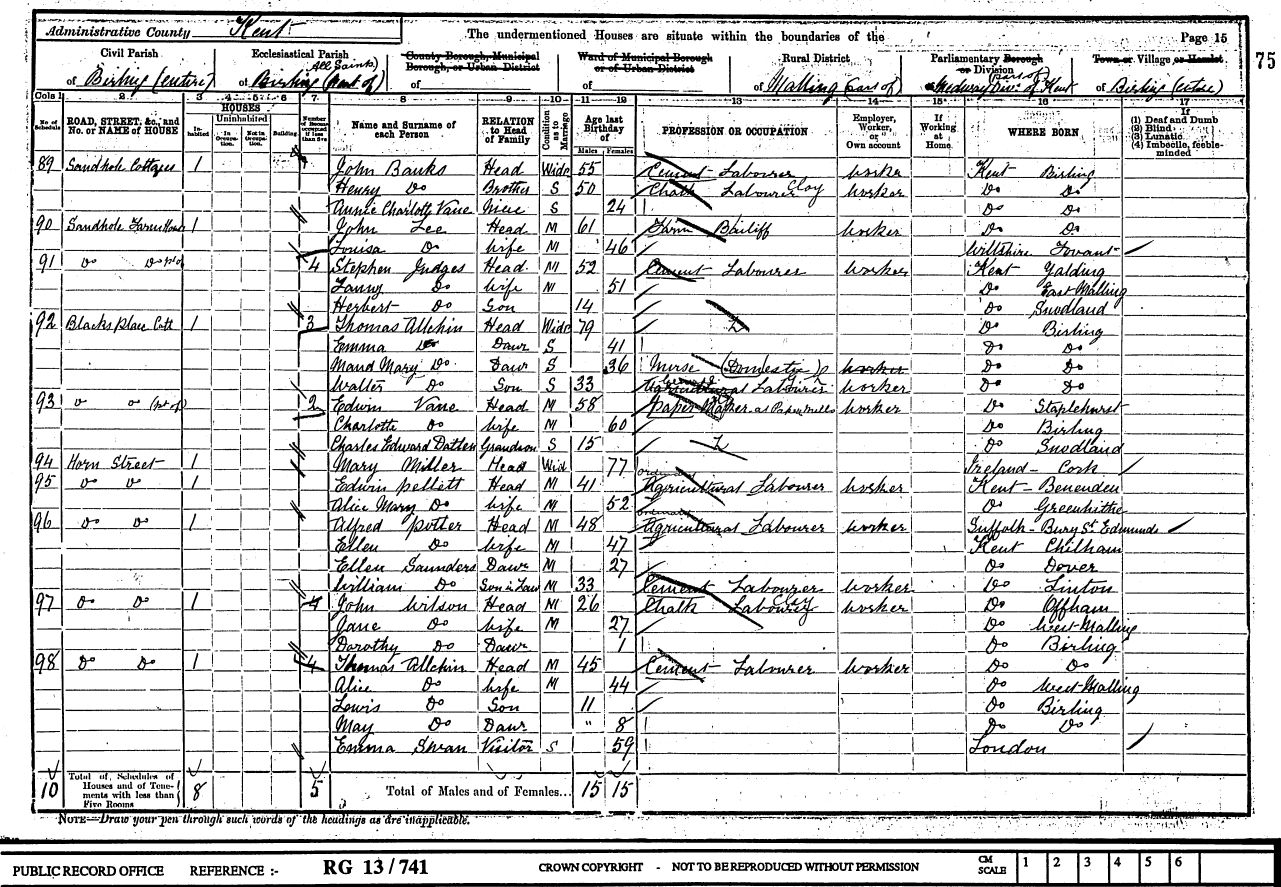 Administrative County Kent
The undermentioned Houses are situate within the boundaries of the
Page 15
75
Civil Parish
of Birling (entire)
Ecclesiastical Parish
All Saints
of Birling (part of)
County Borough, Municipal
Borough, or Urban District
of
Ward of Municipal Borough
or of Urban District
of
Rural District
of Malling (part of)
Parliamentary Borough
or Division
(part of)
of Medway Div. of Kent
Town or Village or Hamlet
of Birling (entire)
Cols 1 2 3 4 5 6 7 8 9 10 11 12 13 14 15 16 17
No. of Schedule
ROAD, STREET, &c., and No. or NAME of HOUSE
HOUSES
Inhabited
Uninhabited
In Occupation.
Not in Occupation.
Building
Number of Rooms occupied if less than five
Name and Surname of each Person
RELATION to Head of Family
Condition as to Marriage
Age last Birthday of
Males Females
PROFESSION OR OCCUPATION
Employer, Worker, or Own account
If Working at Home
WHERE BORN
If
(1) Deaf and Dumb
(2) Blind
(3) Lunatic
(4) Imbecile, feeble-minded
89 Sandhole Cottages 1 John Banks Head Widr 55 Cement Labourer Worker Kent Birling
Henry Do Brother S 50 Chalk Labourer Clay Worker Do Do
Annie Charlotte Vane Niece S 24 Do Do
90 Sandhole Farm House 1 John Lee Head M 61 Farm Bailiff Worker Do Do
Louisa Do Wife M 46 Wiltshire Fovant
91 Do Do pt of 1 4 Stephen Judges Head M 52 Cement Labourer Worker Kent Yalding
Fanny Do Wife M 51 Do East Malling
Herbert Do Son 14 Do Snodland
92 Blacks place Cott 1 3 Thomas Allchin Head Widr 79 Do Birling
Emma Do Daur S 41 Do Do
Maud Mary Do Daur S 36 Nurse (Domestic) Worker Do Do
Walter Do Son S 33 Agricultural Labourer Worker Do Do
93 Do Do (pt of) 1 2 Edwin Vane Head M 58 Paper Maker at Paper Mills Worker Do Staplehurst
Charlotte Do Wife M 60 Do Birling
Charles Edward Datten Grandson S 15 Do Snodland
94 Horn Street 1 Mary Miller Head Wid 77 Ireland - Cork
95 Do Do 1 Edwin Pellett Head M 41 ordinary Agricultural Labourer Worker Kent - Benenden
Alice Mary Do Wife M 52 Do Greenhithe
96 Do Do 1 Alfred Potter Head M 48 ordinary Agricultural Labourer Worker Suffolk - Bury St. Edmunds
Ellen Do Wife M 47 Kent Chilham
Ellen Saunders Daur M 27 Do Dover
William Do Son in Law M 33 Cement Labourer Worker Do Linton
97 Do Do 1 4 John Wilson Head M 26 Chalk Labourer Clay Worker Do Offham
Jane Do Wife M 27 Do West Malling
Dorothy Do Daur 1 Do Birling
98 Do Do 1 4 Thomas Allchin Head M 45 Cement Labourer Worker Do Do
Alice Do Wife M 44 Do West Malling
Lewis Do Son 11 Do Birling
May Do Daur " 8 Do Do
Emma Swan Visitor S 59 London
10 Total of Schedules of Houses and of Tenements with less than Five Rooms 8 5 Total of Males and of Females... 15 15
NOTE—Draw your pen through such words of the headings as are inapplicable.
PUBLIC RECORD OFFICE REFERENCE :- RG 13/741 CROWN COPYRIGHT - NOT TO BE REPRODUCED WITHOUT PERMISSION CM SCALE 1 2 3 4 5 6